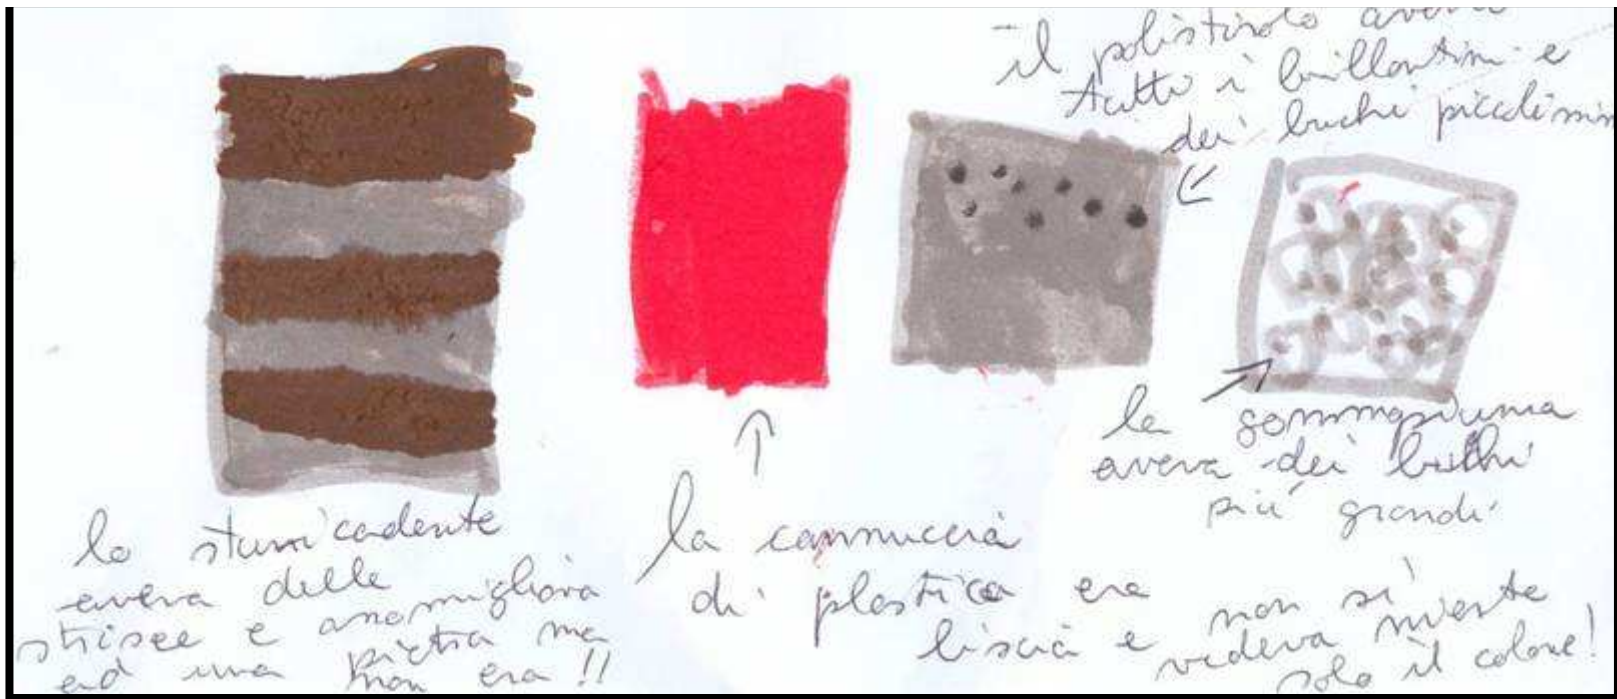 il polistirolo aveva
tutti i brillantini e
dei buchi piccolissimi
la gommapiuma
aveva dei buchi
più grandi
lo stuzzicadente
aveva delle
strisce e assomigliava
ad una pietra ma
non era!!
la cannuccia
di plastica era
liscia e non si
vedeva niente
solo il colore!